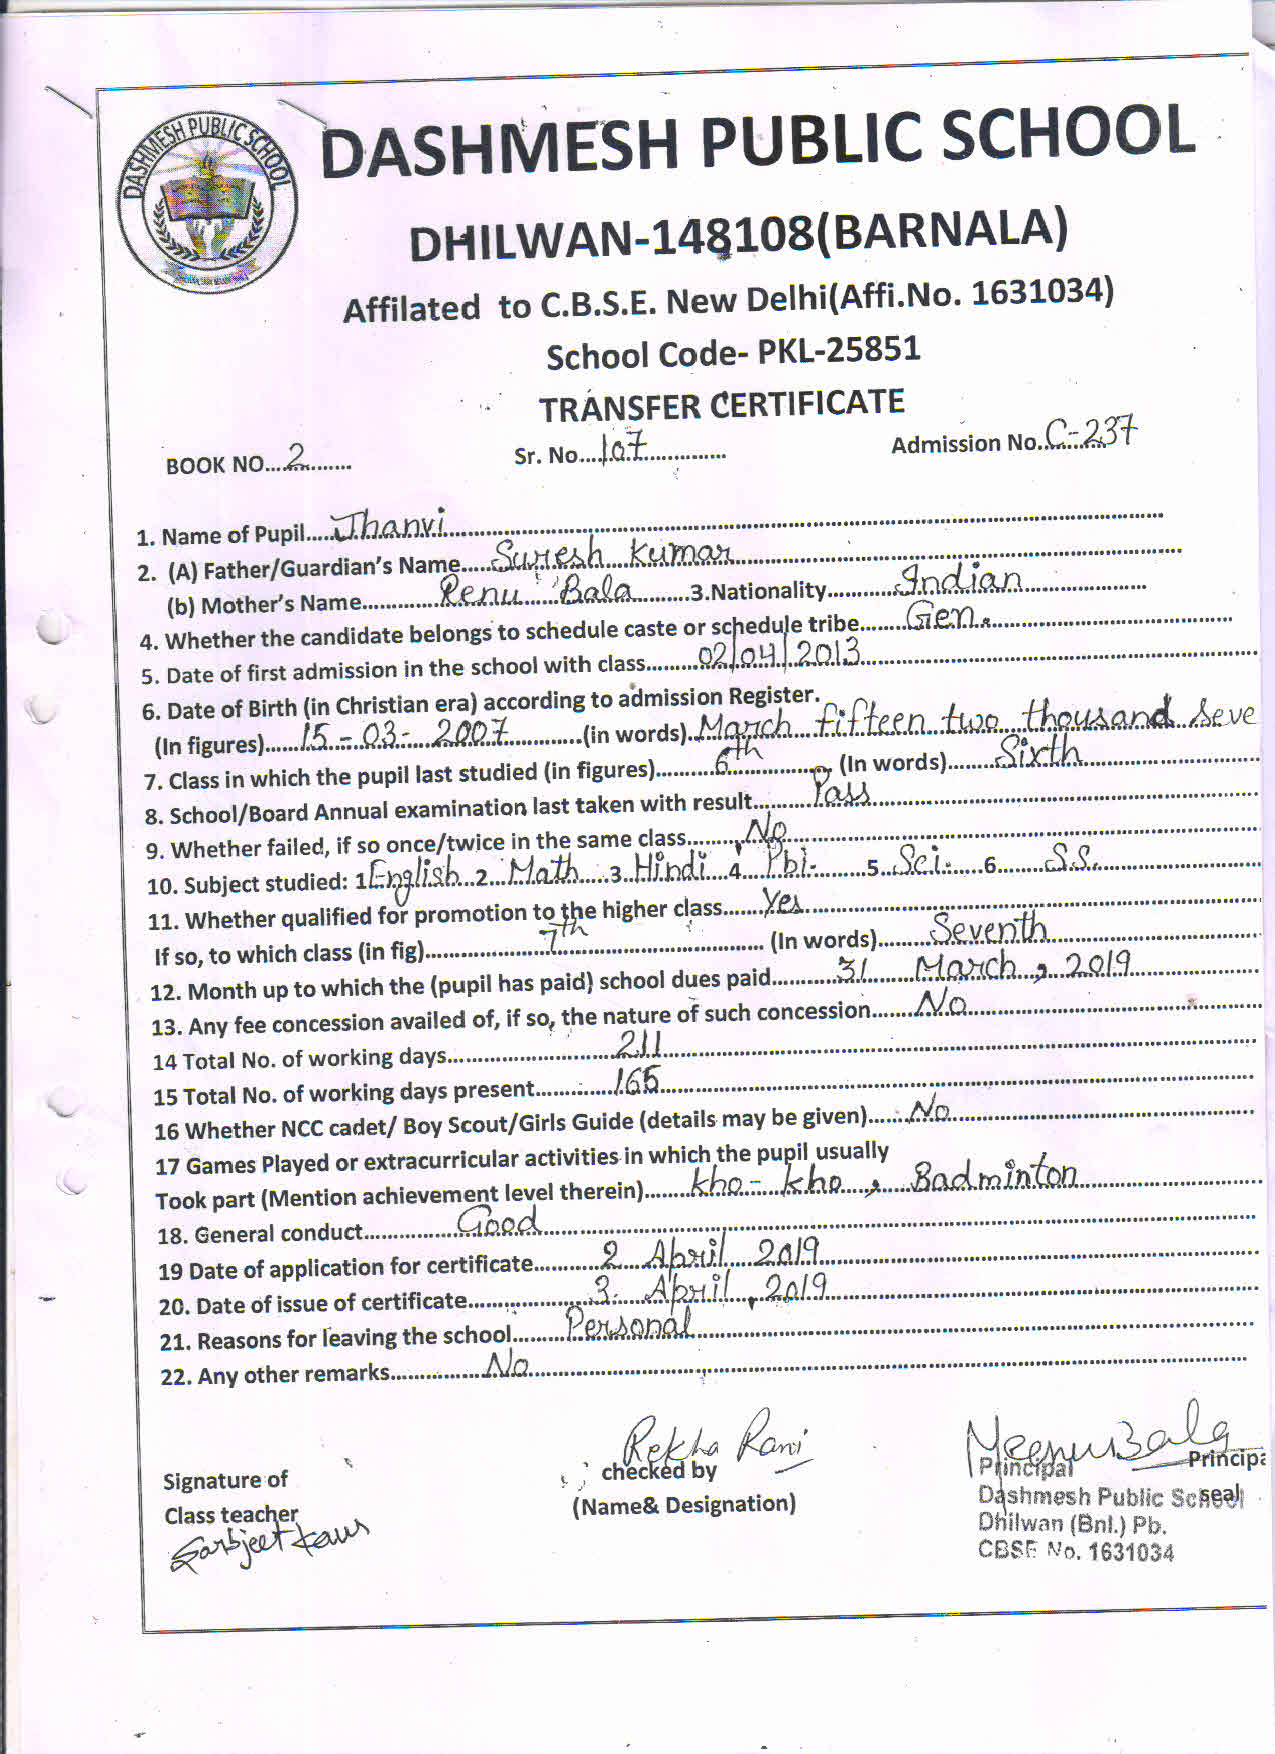 DASHMESH PUBLIC SCHOOL
DASHMESH PUBLIC SCHOOL
DHILWAN-148108(BARNALA)
Affilated to C.B.S.E. New Delhi(Affi.No. 1631034)
School Code- PKL-25851
TRANSFER CERTIFICATE
BOOK NO....2........ Sr. No....107.............. Admission No.C-237
1. Name of Pupil.....Jhanvi
2. (A) Father/Guardian's Name.....Suresh Kumar
(b) Mother's Name.............Renu Bala.........3.Nationality...........Indian
4. Whether the candidate belongs to schedule caste or schedule tribe........Gen.
5. Date of first admission in the school with class.........02/04/2013
6. Date of Birth (in Christian era) according to admission Register.
(In figures).......15-03-2007............(in words).March fifteen two thousand seve
7. Class in which the pupil last studied (in figures).........6th............... (In words)........Sixth
8. School/Board Annual examination last taken with result..........Pass
9. Whether failed, if so once/twice in the same class........No
10. Subject studied: 1English..2...Math....3.Hindi...4...Pbi-.......5..Sci......6.......S.S.
11. Whether qualified for promotion to the higher class......Yes
If so, to which class (in fig)..................7th............................... (In words)........Seventh
12. Month up to which the (pupil has paid) school dues paid...........31 March, 2019
13. Any fee concession availed of, if so, the nature of such concession.......No
14 Total No. of working days..........................211
15 Total No. of working days present.............165
16 Whether NCC cadet/ Boy Scout/Girls Guide (details may be given)......No
17 Games Played or extracurricular activities in which the pupil usually
Took part (Mention achievement level therein).......kho-kho, Badminton
18. General conduct...............Good
19 Date of application for certificate...........2 April 2019
20. Date of issue of certificate.....................3. April, 2019
21. Reasons for leaving the school.........Personal
22. Any other remarks...............No
Rekha Rani MeenuBala
Signature of checked by Principal Principa
Class teacher (Name& Designation) Dashmesh Public School seal
Sarbjeet Kaur Dhilwan (Bnl.) Pb.
CBSE No. 1631034